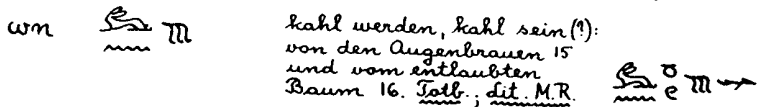 wn 𓃹𓈖𓁸 kahl werden, kahl sein (?):
von den Augenbrauen 15
und vom entlaubten
Baum 16. Totb.; Lit. M.R. 𓃹𓈖